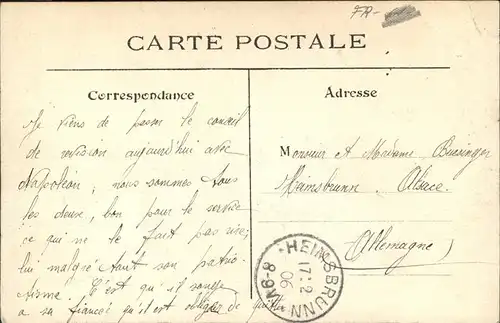 FR-
CARTE POSTALE
Correspondance
Adresse
Je viens de passer le conseil
de revision aujourd'hui avec
Napoléon, nous sommes tous
les deux, bon pour le service
ce qui ne le fait pas rire,
lui malgré tout son patrio-
tisme. C'est qu'il songe
a sa fiancée qu'il est obligé de quitter
Monsieur et Madame
Heimsbrunn. Alsace.
(Allemagne)
HEIMSBRUNN
17.2
06
8-9